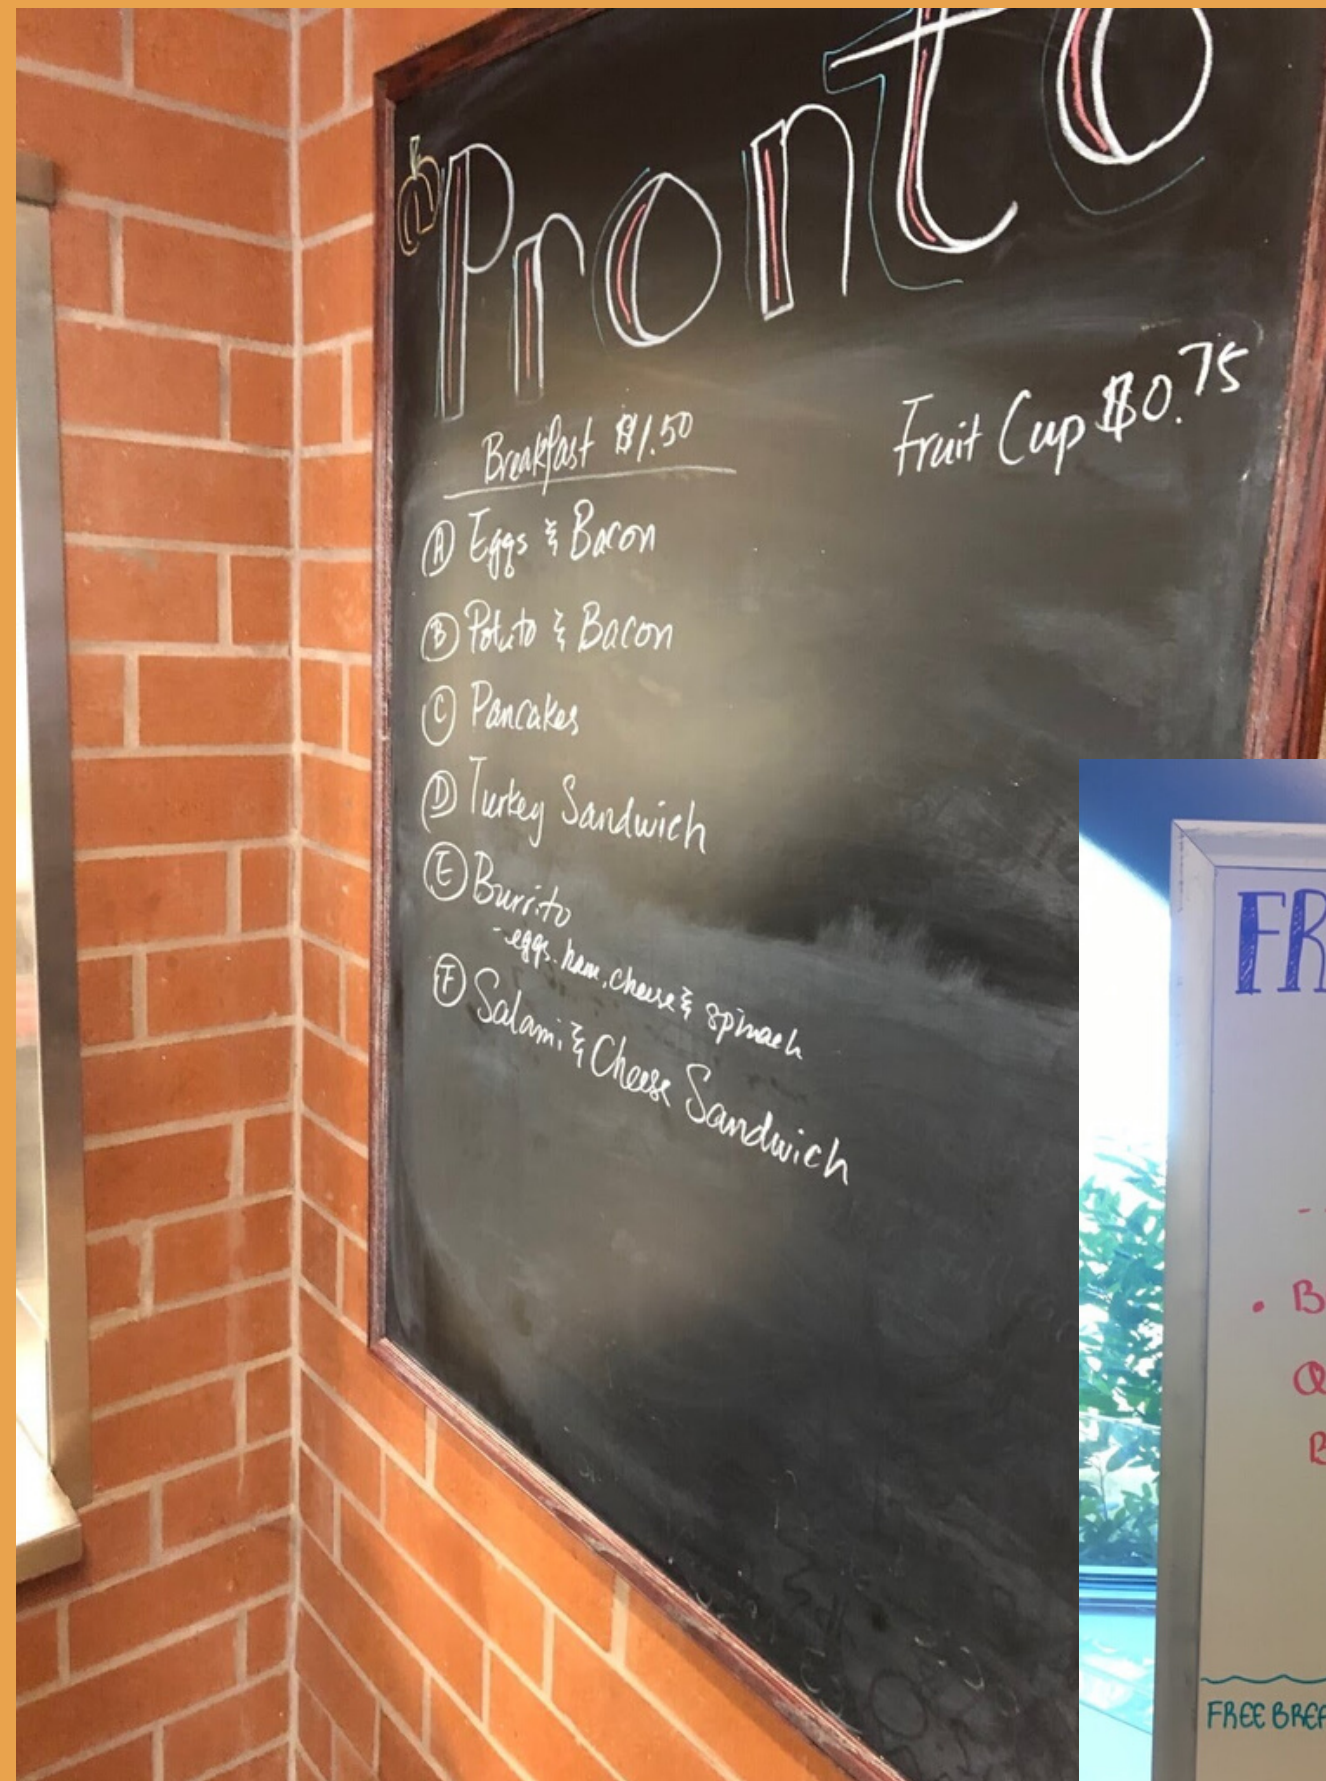 Pronto
Breakfast $1.50
Fruit Cup $0.75
A Eggs & Bacon
B Potato & Bacon
C Pancakes
D Turkey Sandwich
E Burrito
- eggs, ham, cheese & spinach
F Salami & Cheese Sandwich
FR
B
B
FREE BREA